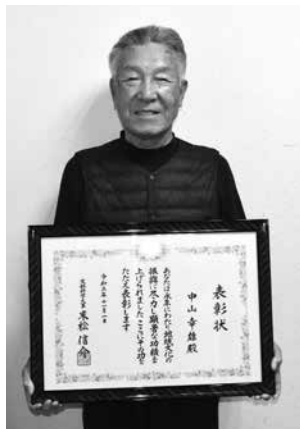 表彰状
中山幸雄殿
あなたは永年にわたり地域文化の
振興に尽力し顕著な功績を
上げられましたここにその功を
たたえ表彰します
令和三年十一月一日
文部科学大臣 末松信介